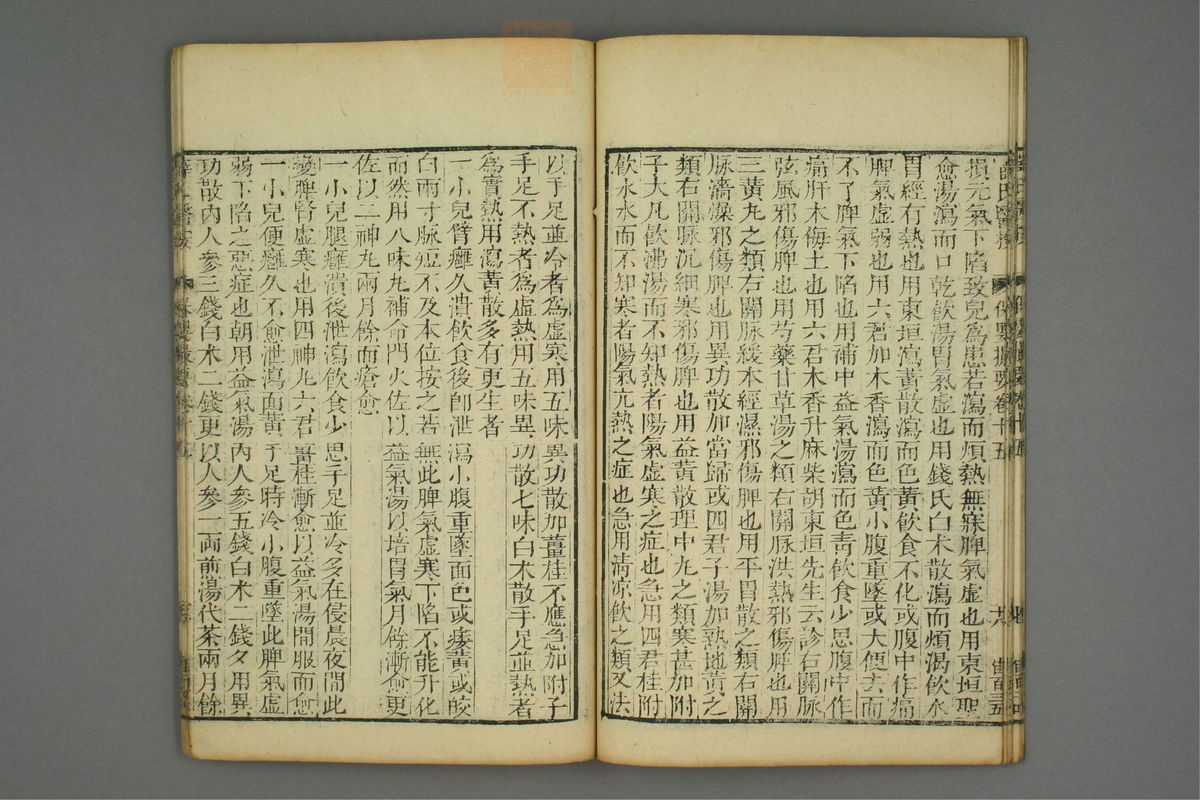 損元氣下陷致兒爲患若瀉而煩熱無寐脾氣虛也用東垣聖
愈湯瀉而口乾飲湯胃氣虛也用錢氏白朮散瀉而煩渴飲水
胃經有熱也用東垣瀉黃散瀉而色黃飲食不化或腹中作痛
脾氣虛弱也用六君加木香瀉而色黃小腹重墜或大便去而
不了脾氣下陷也用補中益氣湯瀉而色青飲食少思腹中作
痛肝木侮土也用六君木香升麻柴胡東垣先生云診右關脉
弦風邪傷脾也用芍藥甘草湯之類右關脉洪熱邪傷脾也用
三黃丸之類右關脉緩本經濕邪傷脾也用平胃散之類右關
脉濇燥邪傷脾也用異功散加當歸或四君子湯加熟地黃之
類右關脉沉細寒邪傷脾也用益黃散理中丸之類寒甚加附
子大凡飲沸湯而不知熱者陽氣虛寒之症也急用四君桂附
飲水水而不知寒者陽氣亢熱之症也急用清凉飲之類又法
以手足並冷者爲虛寒用五味異功散加薑桂不應急加附子
手足不熱者爲虛熱用五味異功散七味白朮散手足並熱者
爲實熱用瀉黃散多有更生者
一小兒臂癰久潰飲食後卽泄瀉小腹重墜面色或痿黃或皎
白兩寸脉短不及本位按之若無此脾氣虛寒下陷不能升化
而然用八味丸補命門火佐以益氣湯以培胃氣月餘漸愈更
佐以二神丸兩月餘而瘡愈
一小兒腿癰潰後泄瀉飲食少思手足並冷多在侵晨夜間此
變脾腎虛寒也用四神丸六君薑桂漸愈以益氣湯間服而愈
一小兒便癰久不愈泄瀉面黃手足時冷小腹重墜此脾氣虛
弱下陷之惡症也朝用益氣湯內人參五錢白朮二錢夕用異
功散內人參三錢白朮二錢更以人參一兩煎湯代茶兩月餘